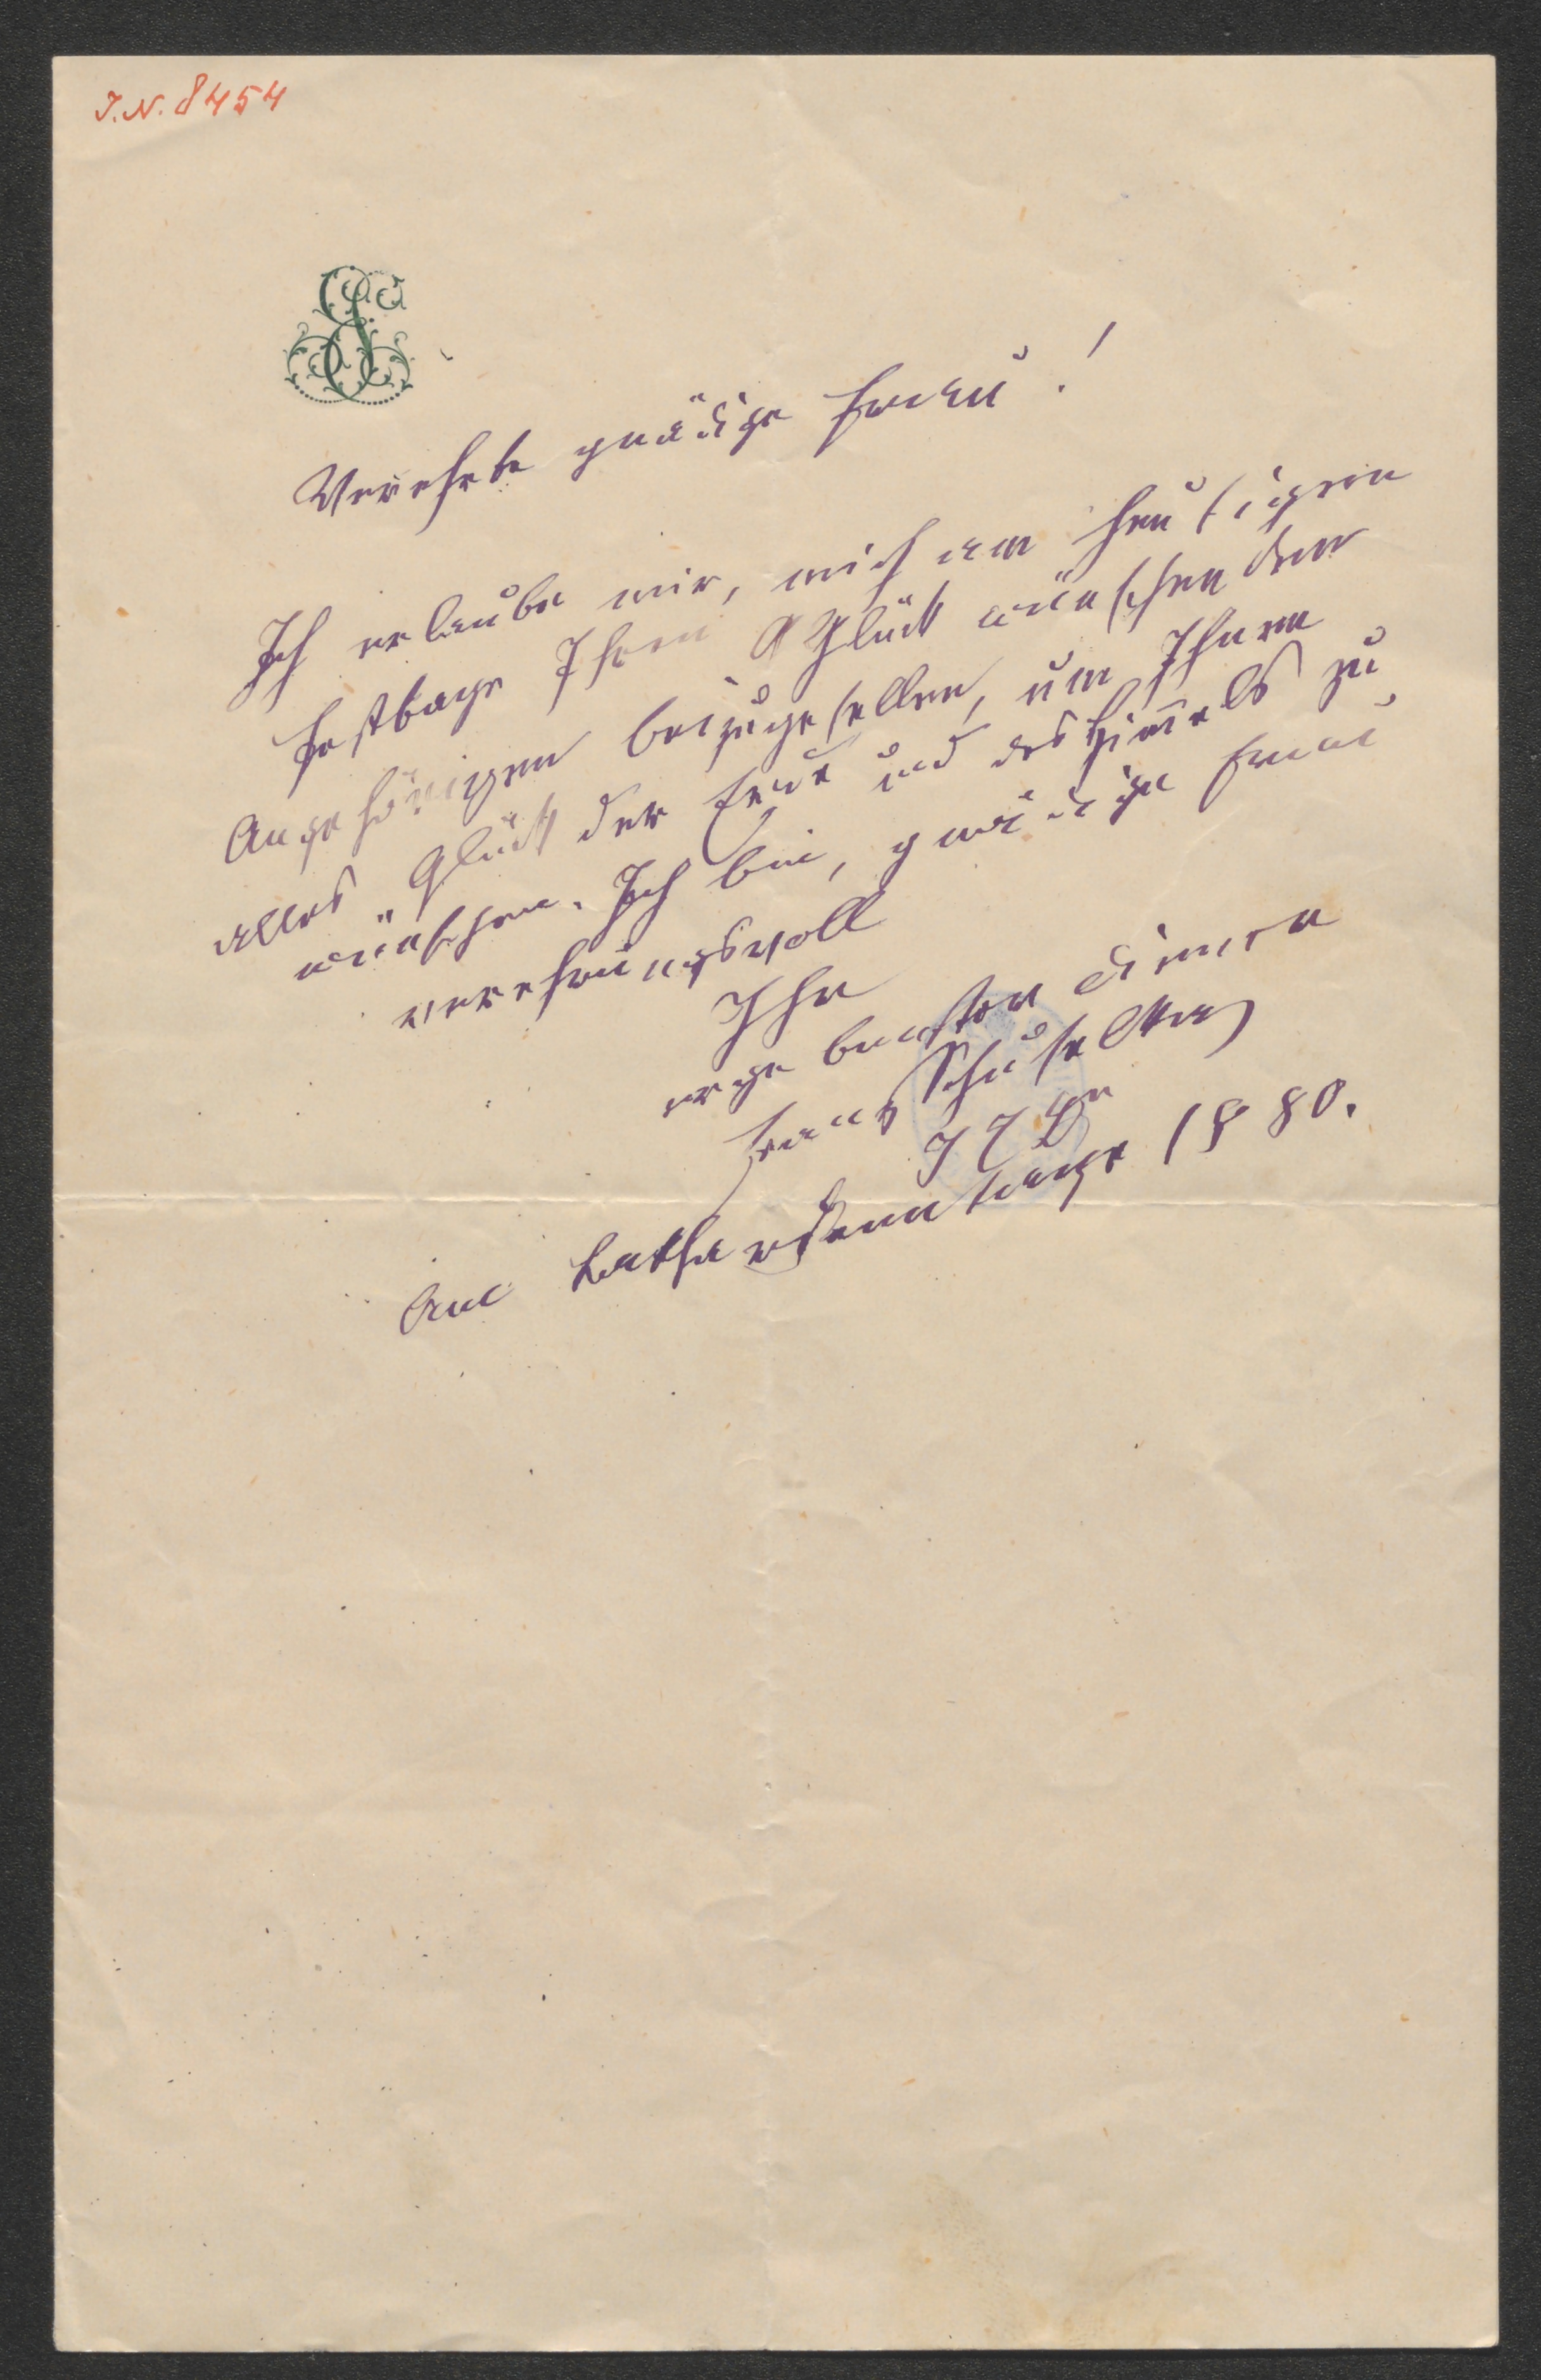 I.N. 8454
Verehrte gnädige Frau!
Ich erlaube mir, mich am heutigen
Festtage Ihren Glück wünschenden
Angehörigen beizugesellen, um Ihnen
alles Glück der Erde und des Him̅els zu
wünschen. Ich bin, gnädige Frau
verehrungsvoll
Ihr
ergebenster Diener
Franz Schuselka
Am Katharinentage 1880.